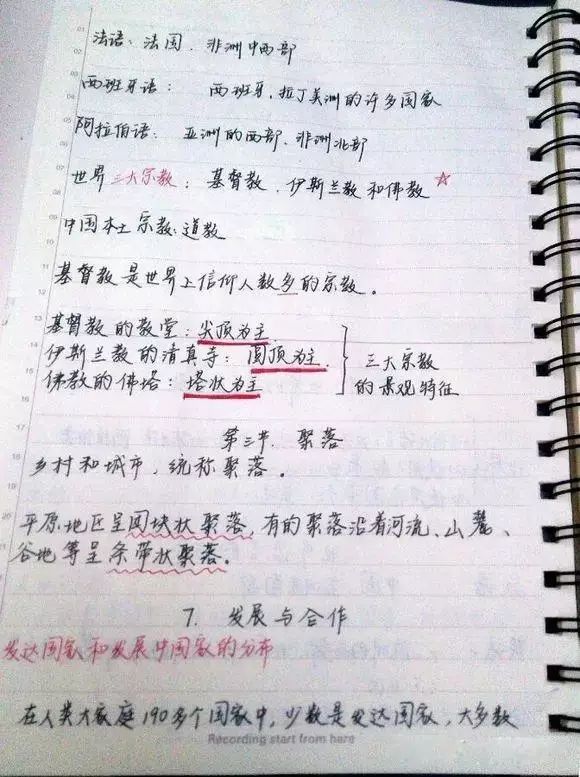 法语：法国、非洲中西部
西班牙语： 西班牙，拉丁美洲的许多国家
阿拉伯语： 亚洲的西部、非洲北部
世界三大宗教：基督教、伊斯兰教和佛教 ☆
中国本土宗教：道教
基督教是世界上信仰人数多的宗教。
基督教的教堂：尖顶为主
伊斯兰教的清真寺：圆顶为主
佛教的佛塔：塔状为主
三大宗教
的景观特征
第三节、聚落
乡村和城市，统称聚落。
平原地区呈团块状聚落，有的聚落沿着河流、山麓、
谷地等呈条带状聚落。
7. 发展与合作
发达国家和发展中国家的分布
在人类大家庭190多个国家中，少数是发达国家，大多数
Recording start from here